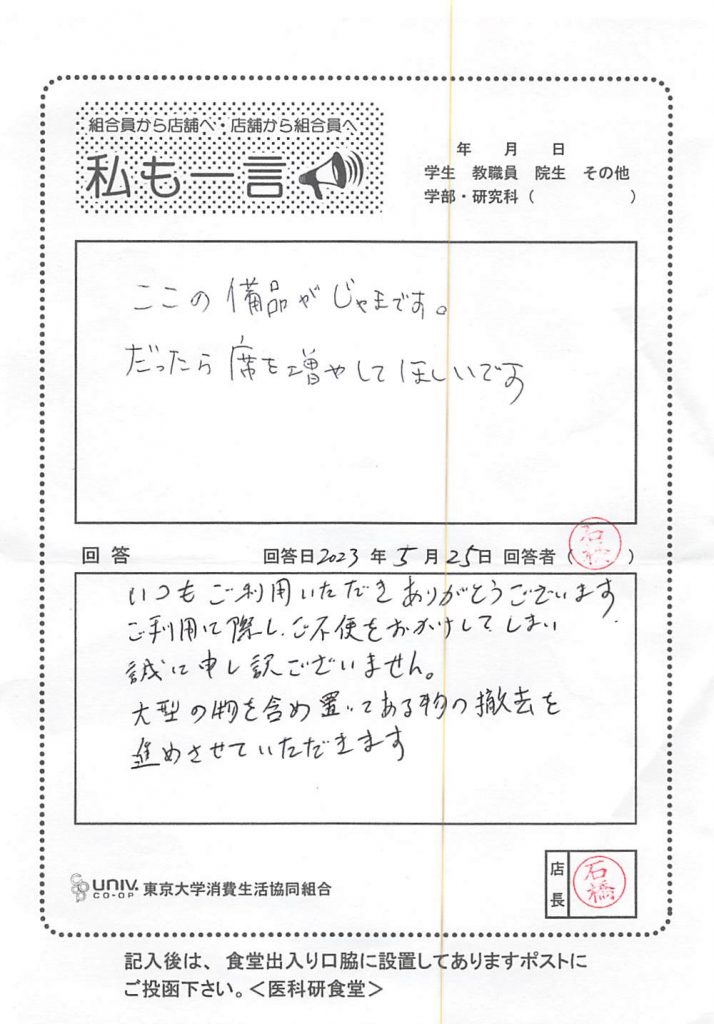 組合員から店舗へ・店舗から組合員へ
私も一言
年 月 日
学生 教職員 院生 その他
学部・研究科（ ）
ここの備品がじゃまです。
だったら席を増やしてほしいです
回答 回答日2023年5月25日 回答者（石橋）
いつもご利用いただきありがとうございます
ご利用に際し、ご不便をおかけしてしまい
誠に申し訳ございません。
大型の物を含め置いてある物の撤去を
進めさせていただきます
UNIV. CO-OP 東京大学消費生活協同組合
店長 石橋
記入後は、食堂出入り口脇に設置してありますポストに
ご投函下さい。＜医科研食堂＞